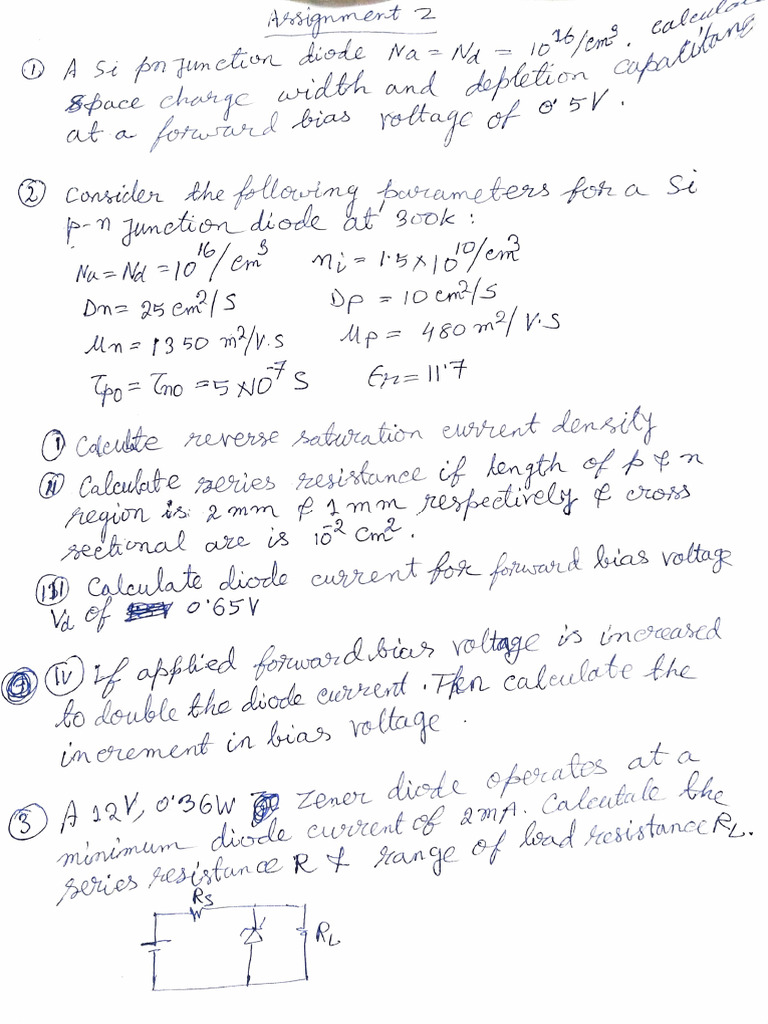 Assignment 2
① A Si pn junction diode Na = Nd = 10^16/cm^3. calculate
space charge width and depletion capacitance
at a forward bias voltage of 0.5V.
② Consider the following parameters for a Si
p-n junction diode at 300k:
Na = Nd = 10^16/cm^3 ni = 1.5×10^10/cm^3
Dn = 25 cm^2/S Dp = 10 cm^2/S
Mn = 1350 m^2/V.S Mp = 480 m^2/V.S
τpo = τno = 5×10^-7 S Er = 11.7
(I) Calculate reverse saturation current density
(II) Calculate series resistance if length of p & n
region is 2 mm & 1 mm respectively & cross
sectional are is 10^-2 cm^2.
(III) Calculate diode current for forward bias voltage
Vd of 0.65V
(IV) If applied forward bias voltage is increased
to double the diode current. Then calculate the
increment in bias voltage.
③ A 12V, 0.36W Zener diode operates at a
minimum diode current of 2mA. Calculate the
series resistance R & range of load resistance RL.
Rs
RL